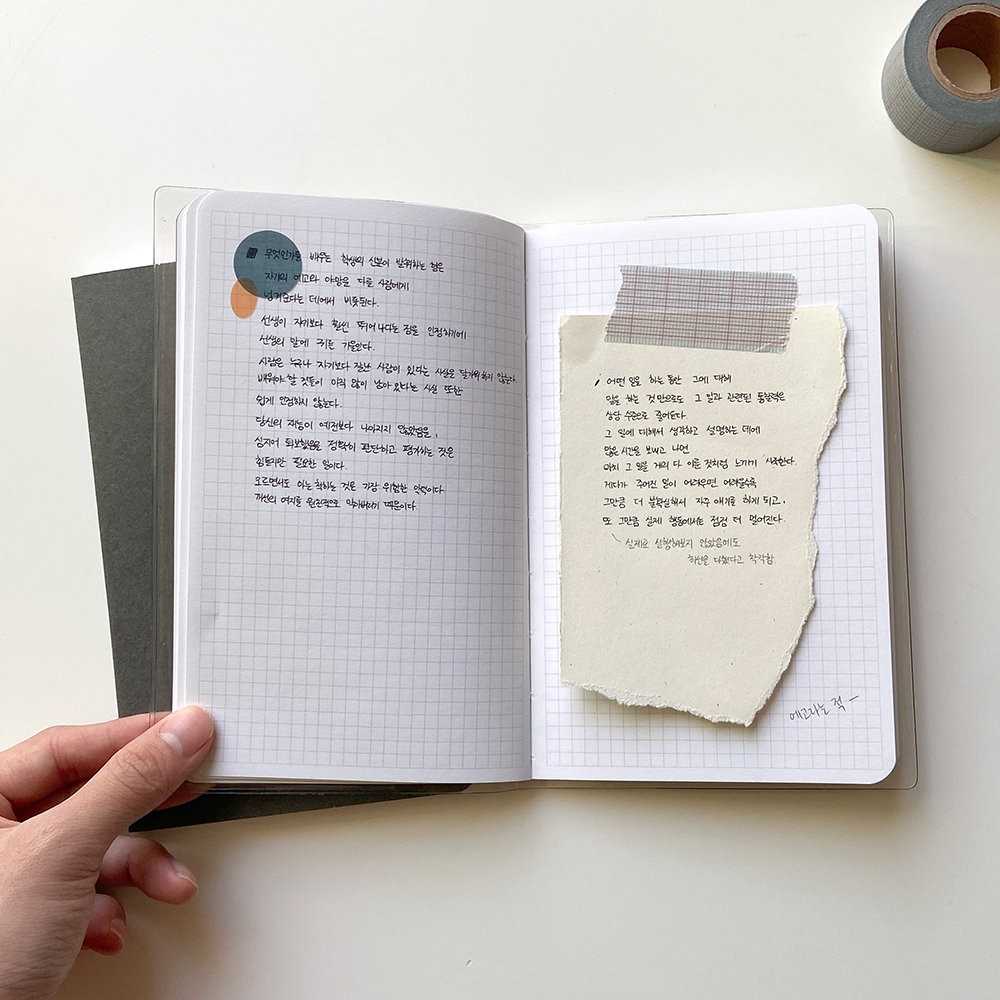 무엇인가를 배우는 학생의 신분이 발휘하는 힘은
자기의 에고와 야망을 다른 사람에게
넘겨준다는 데에서 비롯된다.
선생이 자기보다 훨씬 뛰어나다는 점을 인정하기에
선생의 말에 귀를 기울인다.
사람은 누구나 자기보다 잘난 사람이 있다는 사실을 달가워하지 않는다
배워야 할 것들이 아직 많이 남아있다는 사실 또한
쉽게 인정하지 않는다.
당신의 재능이 예전보다 나아지지 않았음을,
심지어 퇴보했음을 정확히 판단하고 평가하는 것은
힘들지만 필요한 일이다.
모르면서도 아는척하는 것은 가장 위험한 악덕이다
개선의 여지를 원천적으로 막아버리기 때문이다
어떤 일을 하는 동안 그에 대해
말을 하는 것만으로도 그 일과 관련된 통찰력은
상당 수준으로 줄어든다.
그 일에 대해서 생각하고 설명하는 데에
많은 시간을 보내고 나면
마치 그 일을 거의 다 이룬 것처럼 느끼기 시작한다.
게다가 주어진 일이 어려우면 어려울수록
그만큼 더 불확실해서 자주 얘기를 하게 되고,
또 그만큼 실제 행동에서는 점점 더 멀어진다.
실제로 실행해보지 않았음에도
최선을 다했다고 착각함.
에고라는 적 -